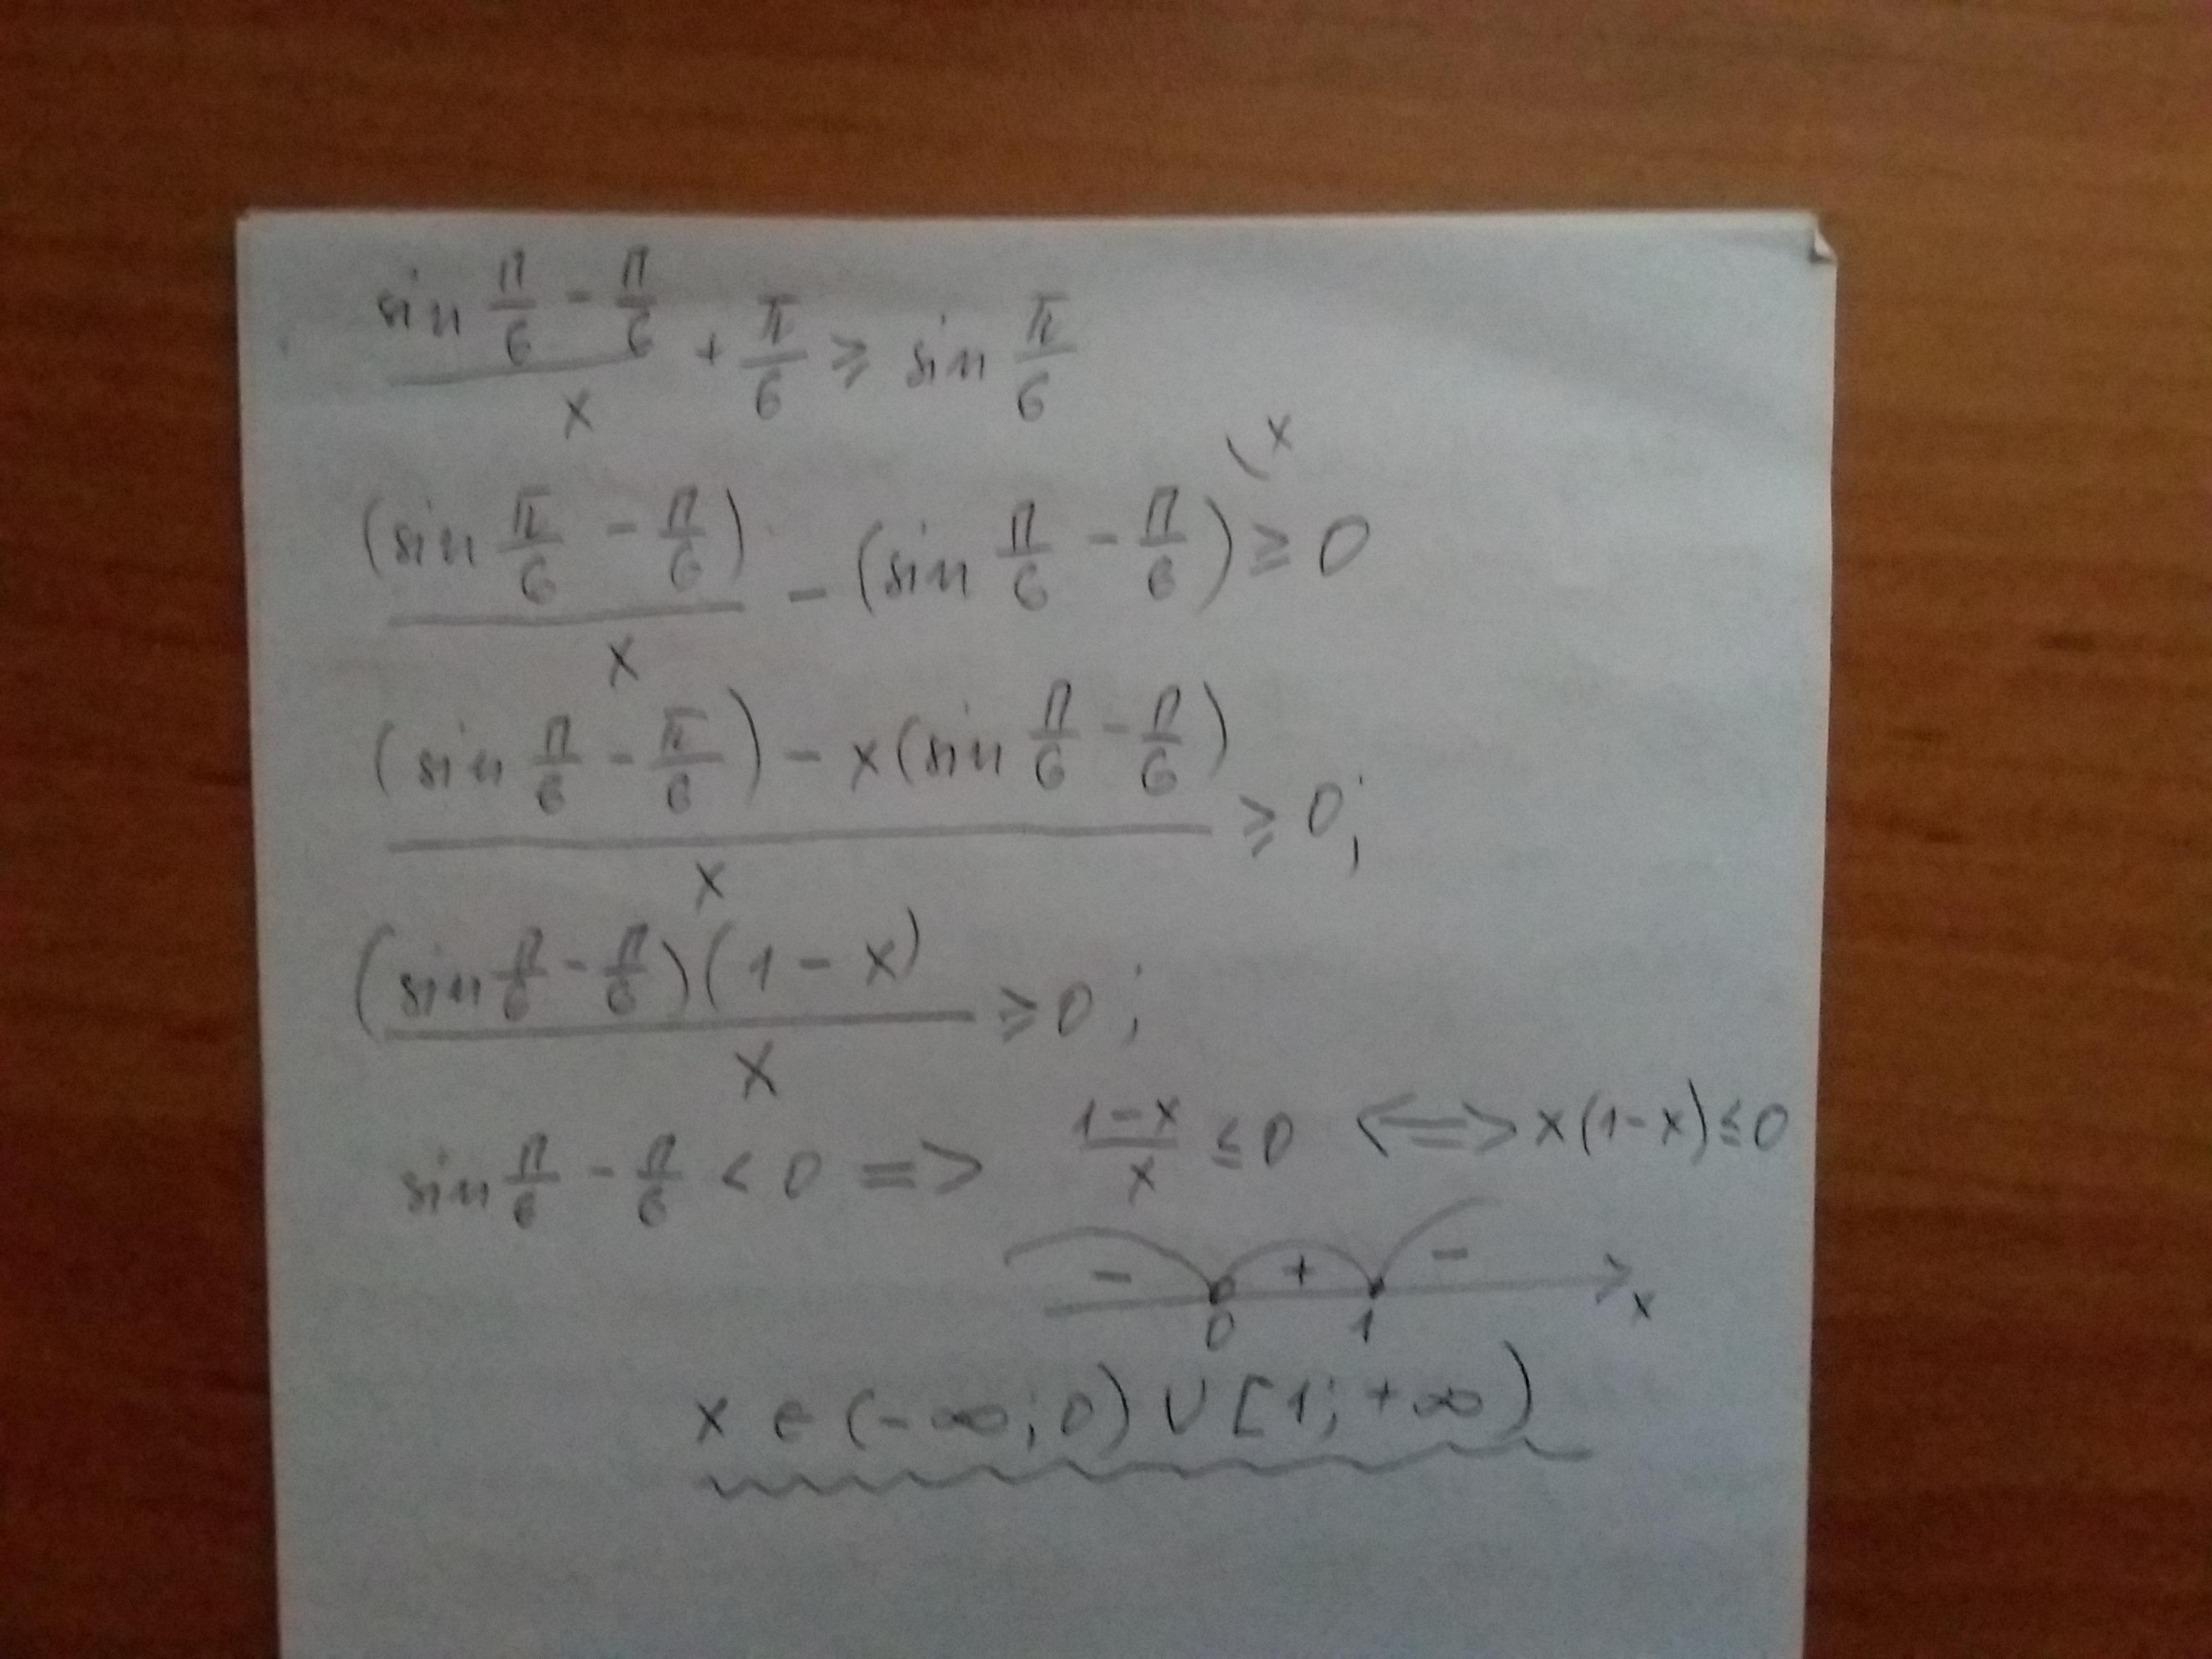 (sin π/6 - π/6)/x + π/6 ⩾ sin π/6
(sin π/6 - π/6)/x - (sin π/6 - π/6)\x ≥ 0
((sin π/6 - π/6) - x(sin π/6 - π/6))/x ⩾ 0;
((sin π/6 - π/6)(1 - x))/x ⩾ 0;
sin π/6 - π/6 < 0 => (1-x)/x ≤ 0 <=> x(1-x) ≤ 0
- + -
0 1 x
x ∈ (-∞; 0) ∪ [1; +∞)